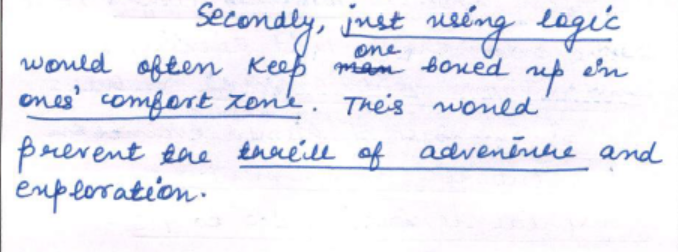 Secondly, just using logic
would often keep one boxed up in
ones' comfort zone. This would
prevent the thrill of adventure and
exploration.